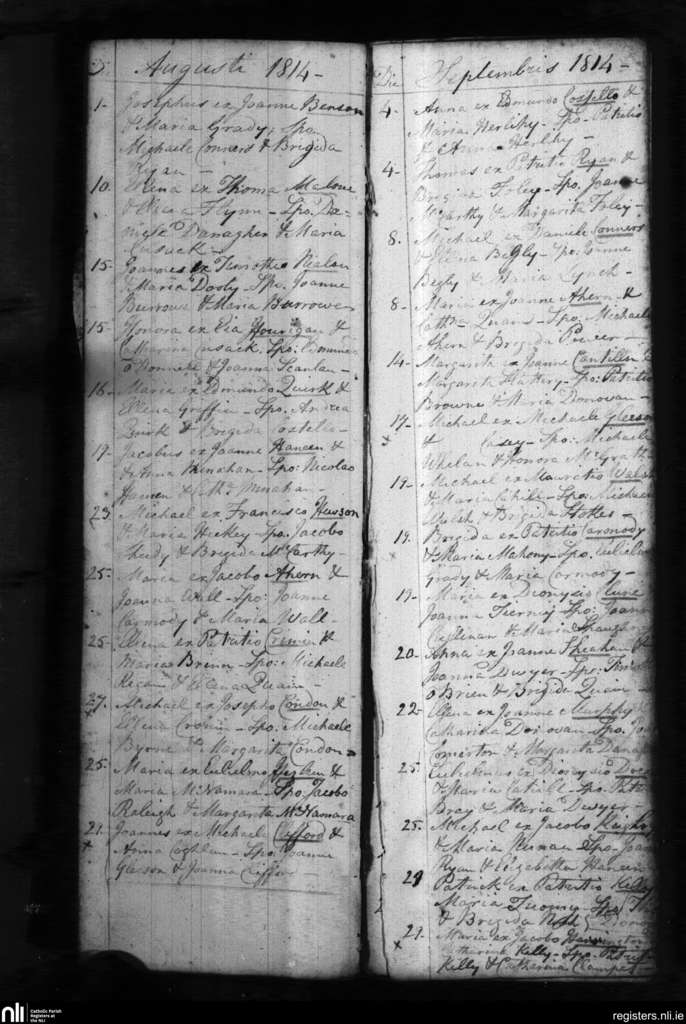 D. Augusti 1814-
1- Josephus ex Joanne Benson
& Maria Grady; Spo.
Michaele Conners & Brigida
Ryan-
10. Elena ex Thoma Malone
& Elena Flynn- Spo. Da-
niele Danagher & Maria
Cusack-
15- Joannes ex Timotheo Nealon
& Maria Dooly- Spo. Joanne
Burrowes & Maria Burrowes
15- Honora ex Elia Hourigan &
Catharina Cusack. Spo:
O'Donnell & Joanna Scanlan-
16- Maria ex Edmundo Quirk &
Ellena Griffin- Spo. Andrea
Quirk & Brigida Costello-
19- Jacobus ex Joanne &
& Anna Minahan- Spo: Nicolao
& Ma Minahan-
23- Michael ex Francisco
& Maria Hickey- Spo. Jacobo
Sheedy & Brigida McCarthy-
25- Maria ex Jacobo Ahern &
Joanna Wall- Spo: Joanne
Carmody & Maria Wall-
25- Elena ex Patritio Cronin &
Maria Brenn- Spo: Michaele
Regan & Elena Quain
27- Michael ex Josepho Condon &
Ellena Cronin- Spo: Michaele
Byrne & Margarita Condon-
25. Maria ex Gulielmo &
Maria McNamara- Spo. Jacobo
Raleigh & Margarita McNamara
21. Joannes ex Michael Clifford &
Anna Coghlan- Spo. Joanne
Gleeson & Joanna Clifford
Die Septembris 1814-
4. Anna ex Edmundo Costello &
Maria Herlihy- Spo. Patritio
& Anna Herlihy-
4- Thomas ex Patritio Ryan &
Brigida Foley- Spo. Joanne
McCarthy & Margarita Foley-
8. Michael ex Daniele Conners
& Elena Begly- Spo. Joanne
Begly & Maria Lynch-
8- Maria ex Joanne Ahern &
Cathna Quane- Spo. Michaele
Ahern & Brigida Power-
14- Margarita ex Joanne Cantillon &
Margarita Slattery- Spo: Patritio
Browne & Maria Donovan-
17- Michael ex Michaele Gleeson
& Casey- Spo: Michaele
Whelan & Honora McGrath
19- Michael ex Mauritio Walsh
& Maria Spo: Michaele
Walsh & Brigida Stokes-
19. Brigida ex Patritio Carmody
& Maria Mahony- Spo. Gulielmo
Grady & Maria Carmody-
19- Maria ex Dionysio
Joanna Tierney- Spo: Joanne
& Maria Shaughn
20- Anna ex Joanne Sheahan &
Joanna Dwyer- Spo: Thoma
O Brien & Brigida Quan-
22- Elena ex Joanne Murphy &
Catharina Donovan- Spo.
& Margarita
25. Gulielmus ex Dionysio
& Maria Cahill- Spo.
Bray & Maria Dwyer-
25. Michael ex Jacobo
& Maria Spo. Joan
Ryan & Elizabetha
29 Patrick ex Patritio Kelly
Maria Spo.
& Brigida
21. Maria ex Jacobo Harrington
Catharina Kelly- Spo- Patritio
Kelly & Catharina
nli Catholic Parish
Registers at
the NLI
registers.nli.ie